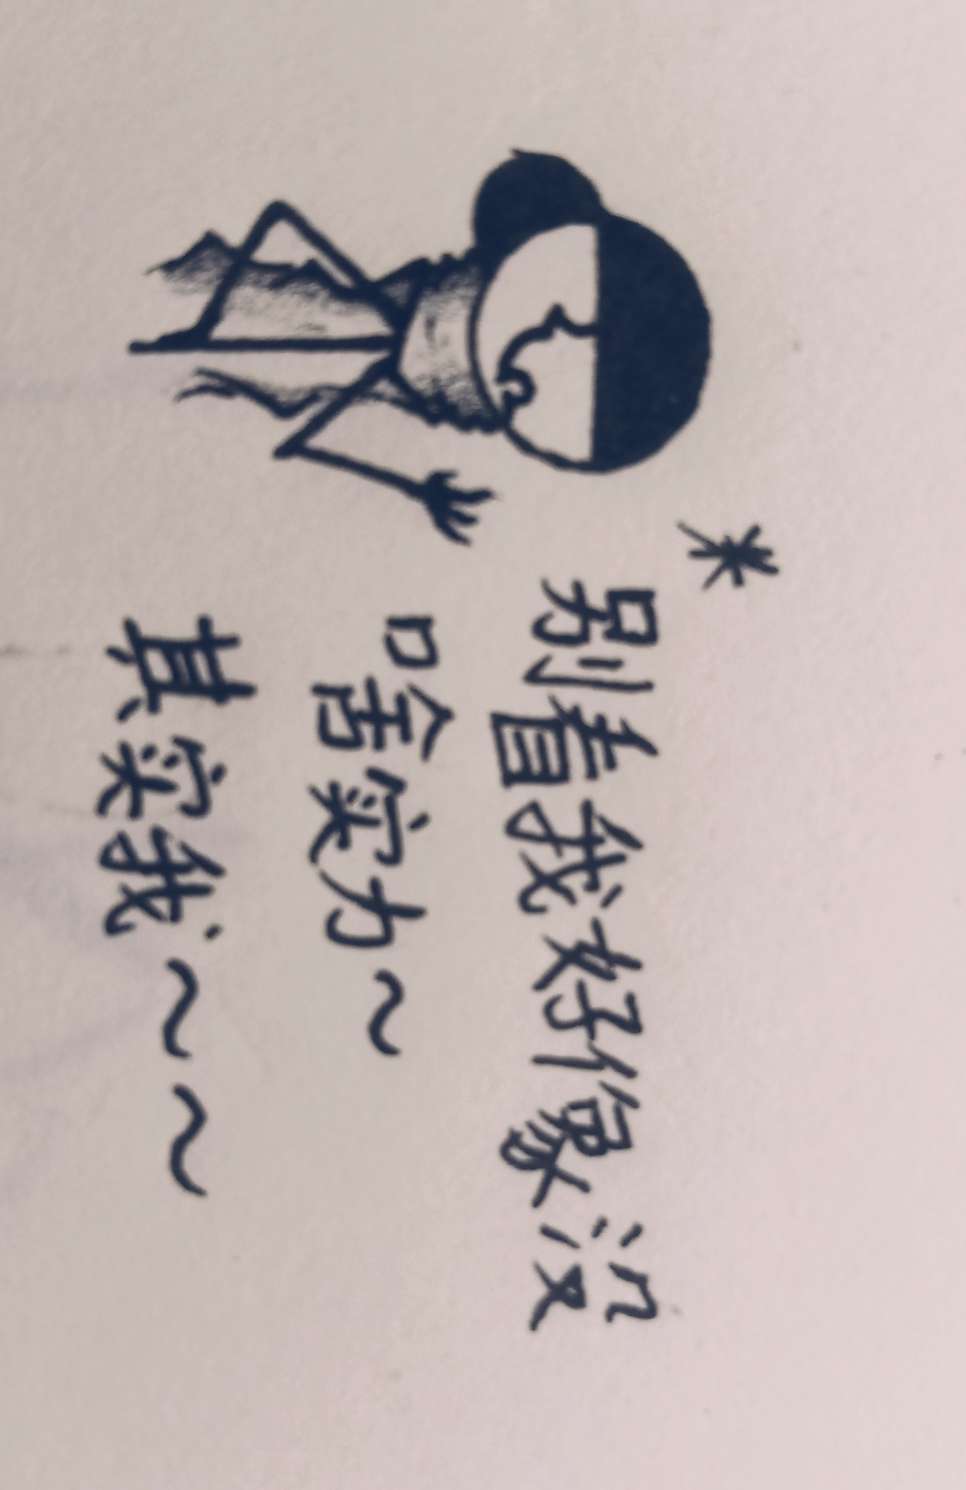 别看我好像没
啥实力~
其实我~~